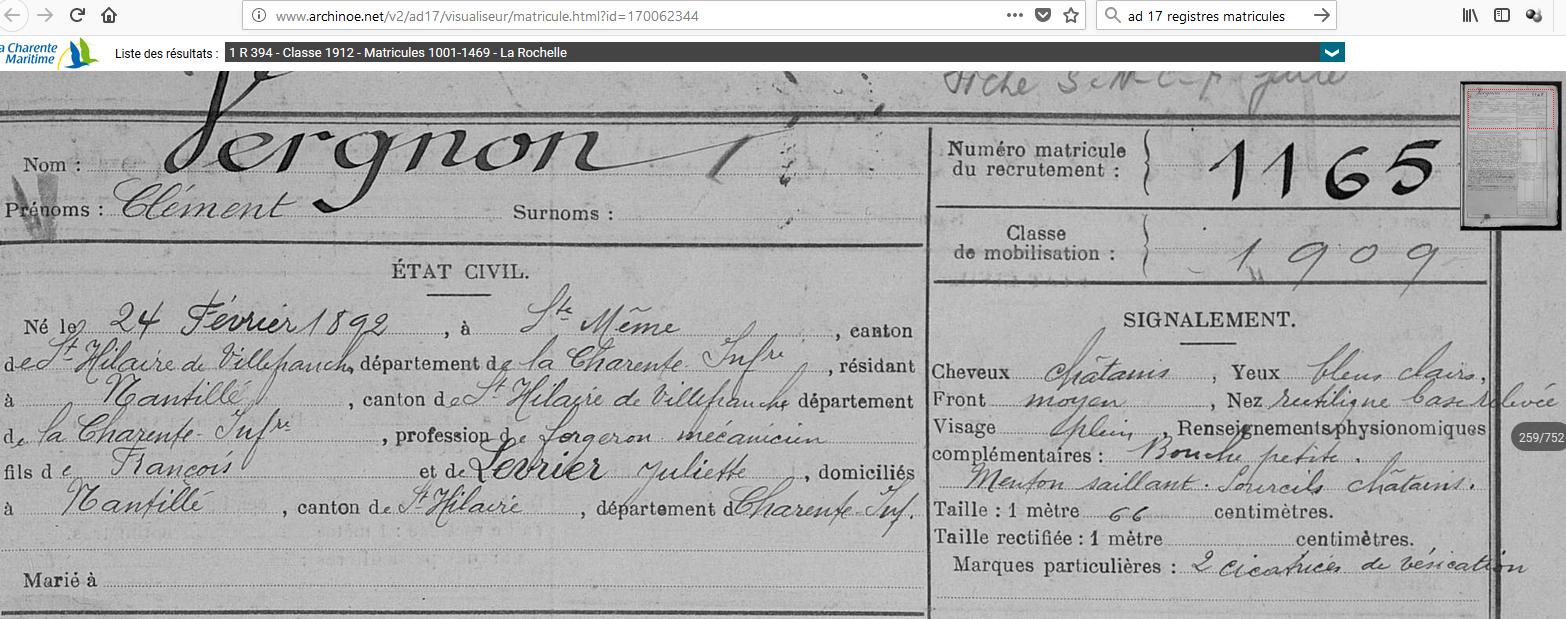 www.archinoe.net/v2/ad17/visualiseur/matricule.html?id=170062344
ad 17 registres matricules
la Charente
Maritime
Liste des résultats :
1 R 394 - Classe 1912 - Matricules 1001-1469 - La Rochelle
Fiche
Nom : Vergnon
Prénoms : Clément Surnoms :
Numéro matricule
du recrutement : 1165
Classe
de mobilisation : 1909
ÉTAT CIVIL.
Né le 24 Février 1892, à Ste Même, canton
de St Hilaire de Villefranche, département de la Charente Infre, résidant
à Nantillé, canton de St Hilaire de Villefranche département
de la Charente-Infre, profession de forgeron mécanicien
fils de François et de Levrier Juliette, domiciliés
à Nantillé, canton de St Hilaire, département d Charente-Inf.
Marié à
SIGNALEMENT.
Cheveux châtains, Yeux bleus clairs,
Front moyen, Nez rectiligne base relevée
Visage plein, Renseignements physionomiques
complémentaires : Bouche petite.
Menton saillant. Sourcils châtains.
Taille : 1 mètre 66 centimètres.
Taille rectifiée : 1 mètre centimètres.
Marques particulières : 2 cicatrices de vésication
259/752